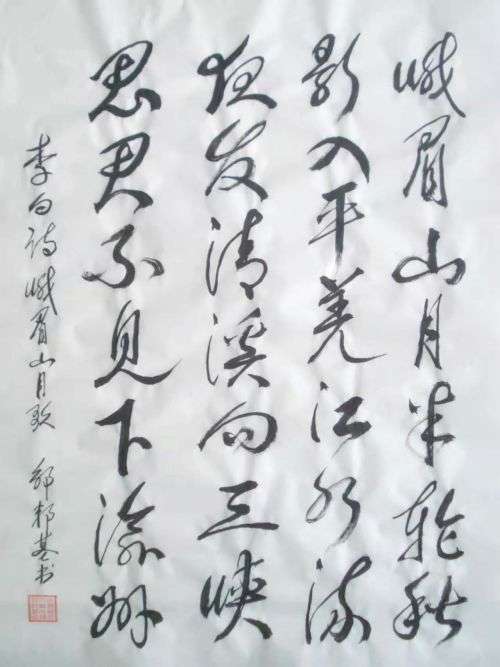 峨眉山月半轮秋
影入平羌江水流
夜发清溪向三峡
思君不见下渝州
李白诗峨眉山月歌 书